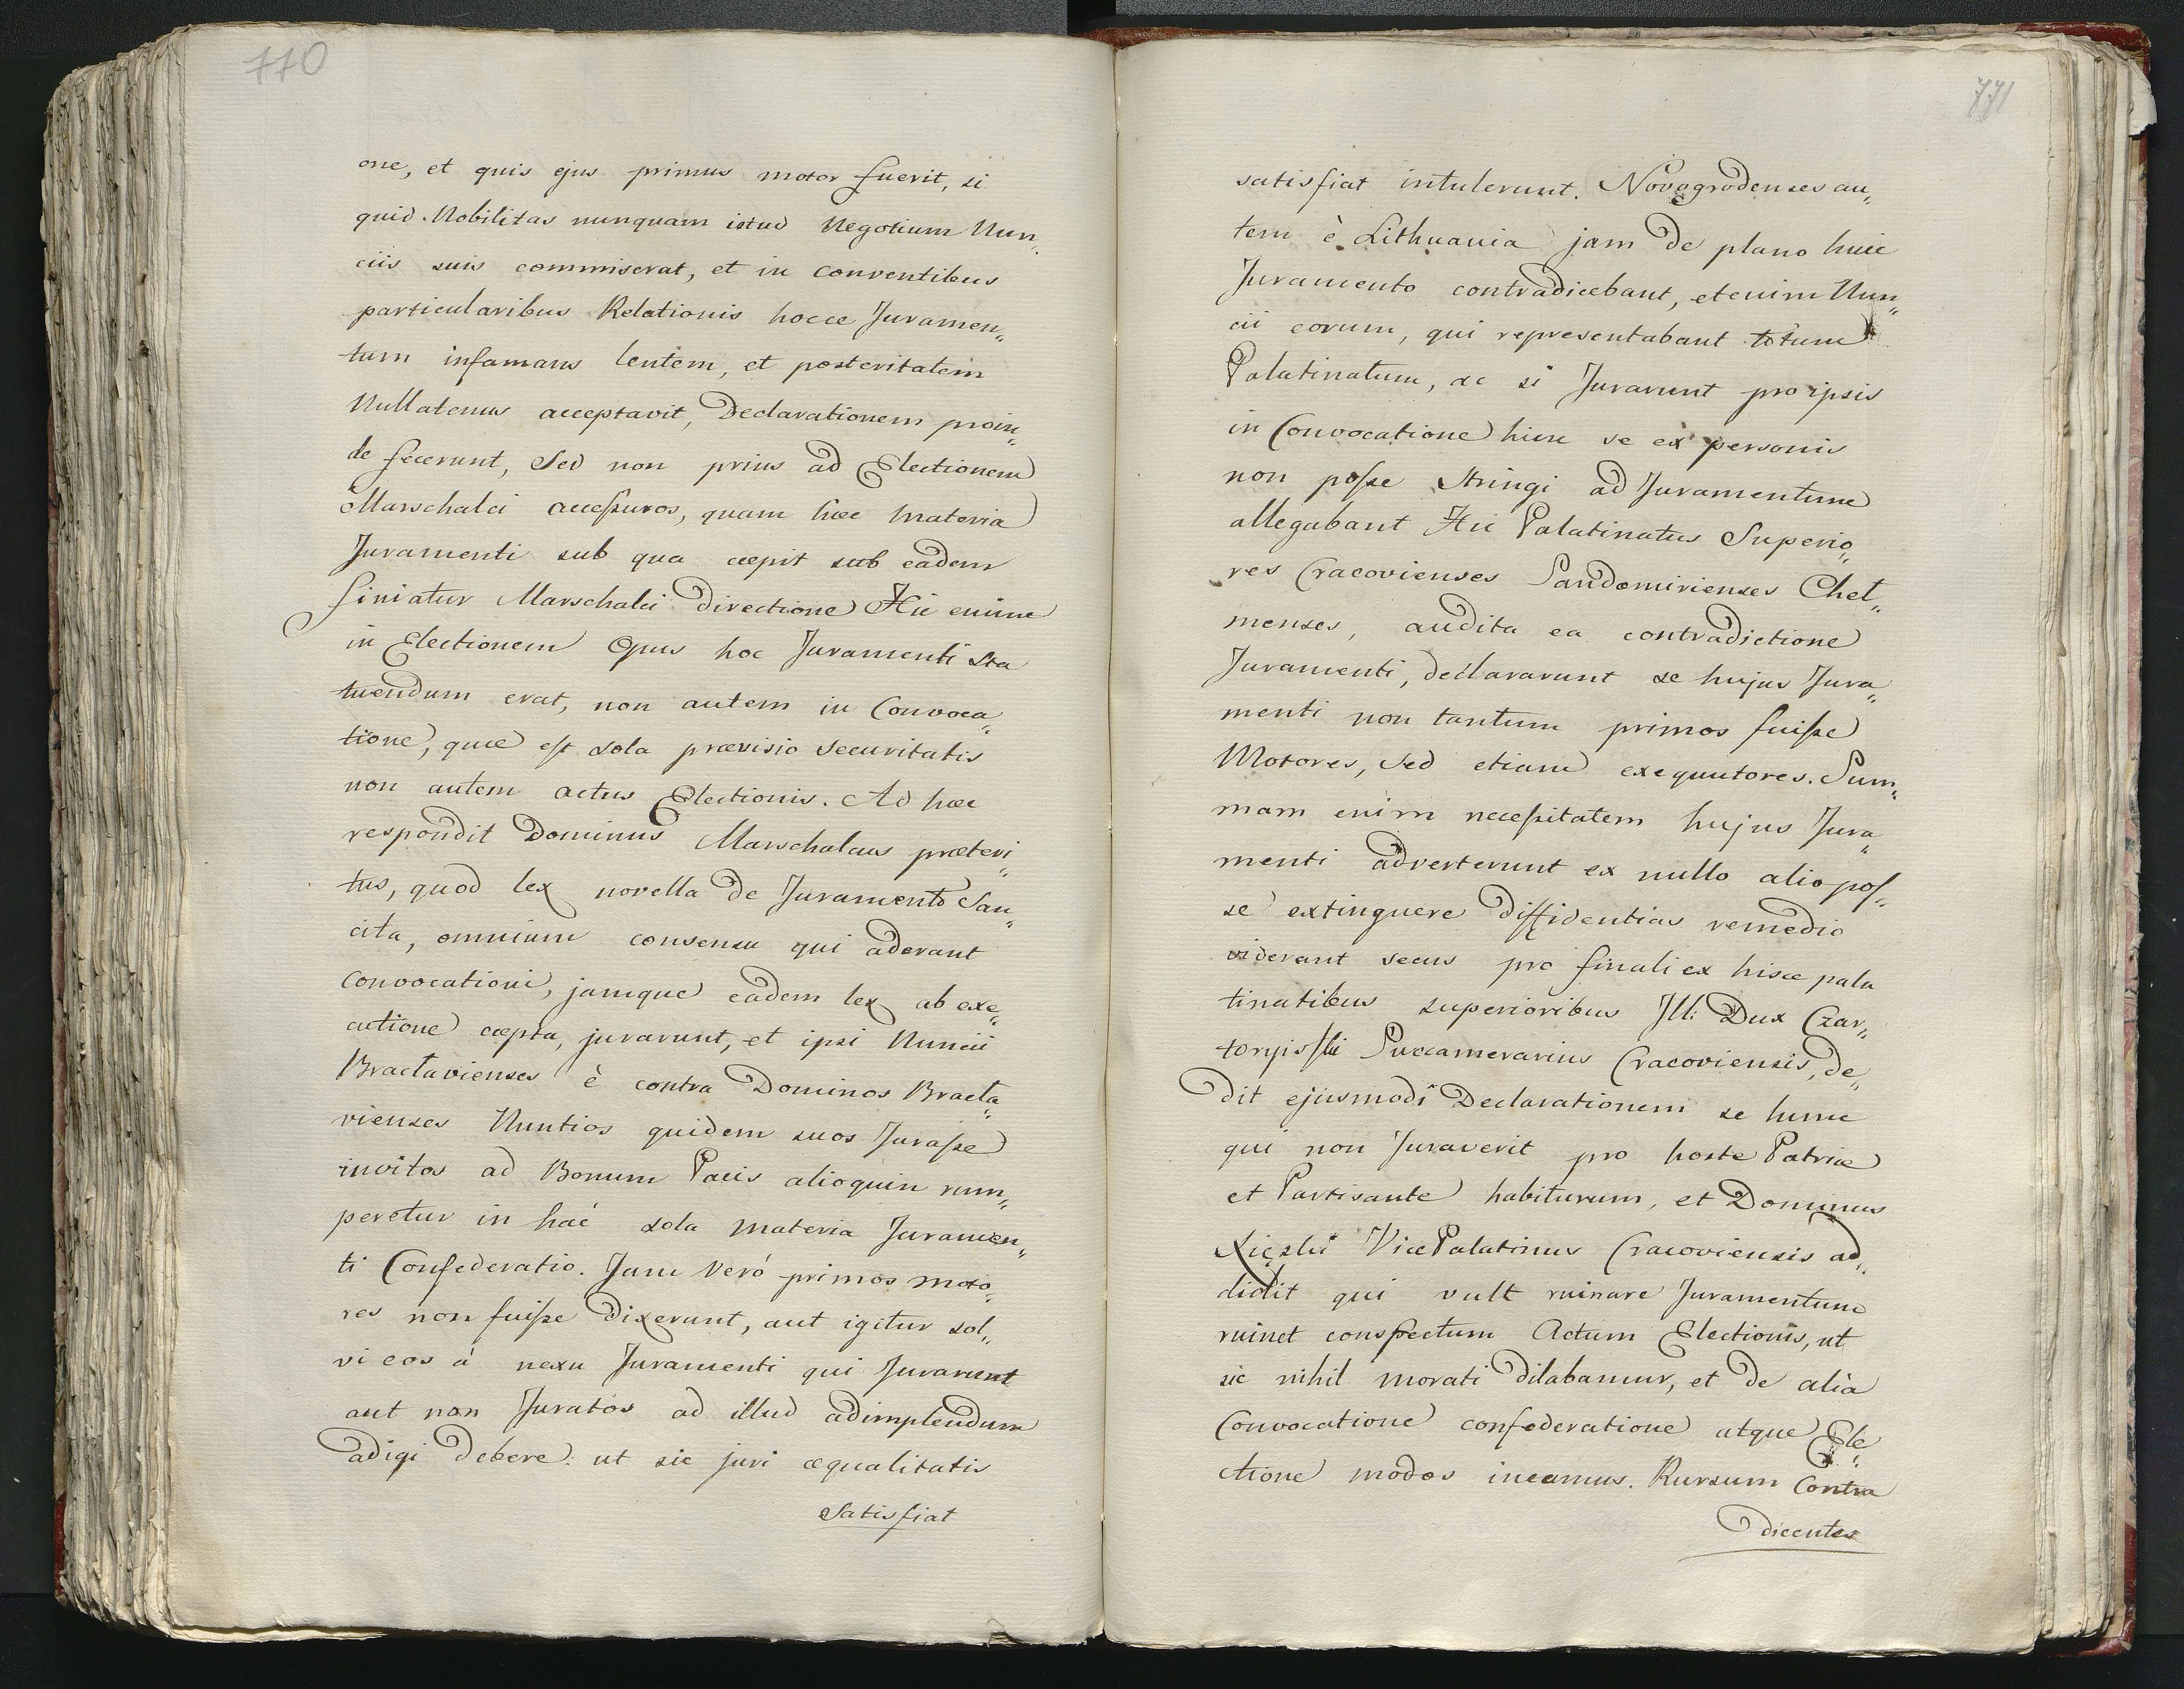 770
one, et quis ejus primus motor fuerit, si
quid. Nobilitas nunquam istud Negotium Nun„
ciis suis commiserat, et in conventibus
particularibus Relationis hocce Juramen„
tum infamans lentem, et posteritatem
Nullatenus acceptavit, Declarationem proin„
de fecerunt, Sed non prius ad Electionem
Marschalci accessuros, quam hæc materia
Juramenti sub qua cœpit sub eadem
finiatur Marschalci Directione Hic enim
in Electionem Opus hoc Juramenti sta
tuendum erat, non autem in Convoca„
tione, quæ est sola prævisio securitatis
non autem actus Electionis. Ad hæc
respondit Dominus Marschalcus præteri„
tus, quod lex novella de Juramento San„
cita, omnium consensu qui aderant
convocationi, jamque eadem lex ab exe„
cutione cæpta, jurarunt, et ipsi Nuncii
Bractavienses è contra Dominos Bracta„
vienses Nuntios quidem suos Jurasse
invitos ad Bonum Pacis alioquin rum„
peretur in hac sola materia Juramen„
ti Confederatio. Jam Veró primos moto„
res non fuisse Dixerunt, aut igitur sol„
vi eos á nexu Juramenti qui Jurarunt
aut non Juratos ad illud adimplendum
adigi Debere: ut sic juri æqualitatis
Satisfiat
771
satisfiat intulerunt. Novogrodenses au„
tem è Lithuania jam de plano huic
Juramento contradicebant, etenim Nun„
cii eorum, qui representabant totum
Palatinatum, ac si Jurarunt pro ipsis
in Convocatione hinc se ex personis
non posse Stringi ad Juramentum
allegabant Hic Palatinatus Superio„
res Cracovienses Sandomirienses Chel„
menses, audita ea contradictione
Juramenti, declararunt se hujus Jura„
menti non tantum primos fuisse
Motores, Sed etiam exequutores. Sum„
mam enim necessitatem hujus Jura„
menti adverterunt ex nullo alio pos„
se extinguere Diffidentias remedio
viderant secus pro finali ex hisce pala
tinatibus superioribus Ill: Dux Czar„
toryisski Succamerarius Cracoviensis, de„
dit ejusmodi Declarationem se hunc
qui non Juraverit pro hoste Patriæ
et Partisante habiturum, et Dominus
Xięski VicePalatinus Cracoviensis ad„
didit qui vult ruinare Juramentum
ruinet conspectum Actum Electionis, ut
sic nihil morati Dilabamur, et de aliâ
Convocatione confederatione atque Ele„
ctione modos ineamus. Rursum Contra
Dicentes